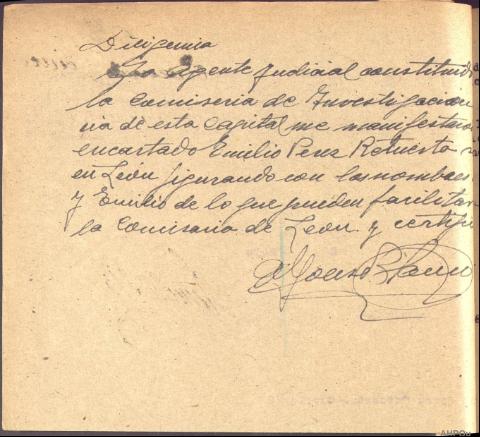 Diligencia
Yo Agente Judicial constituido
la comiseria de Investigacion
ria de esta Capital me manifestaro
encartado Emilio Perez Retuesto
en León figurando con los nombres
y Emilio de lo que pueden facilitar
la Comisaria de León y certifi
Alfonso Blanco
AHPOu